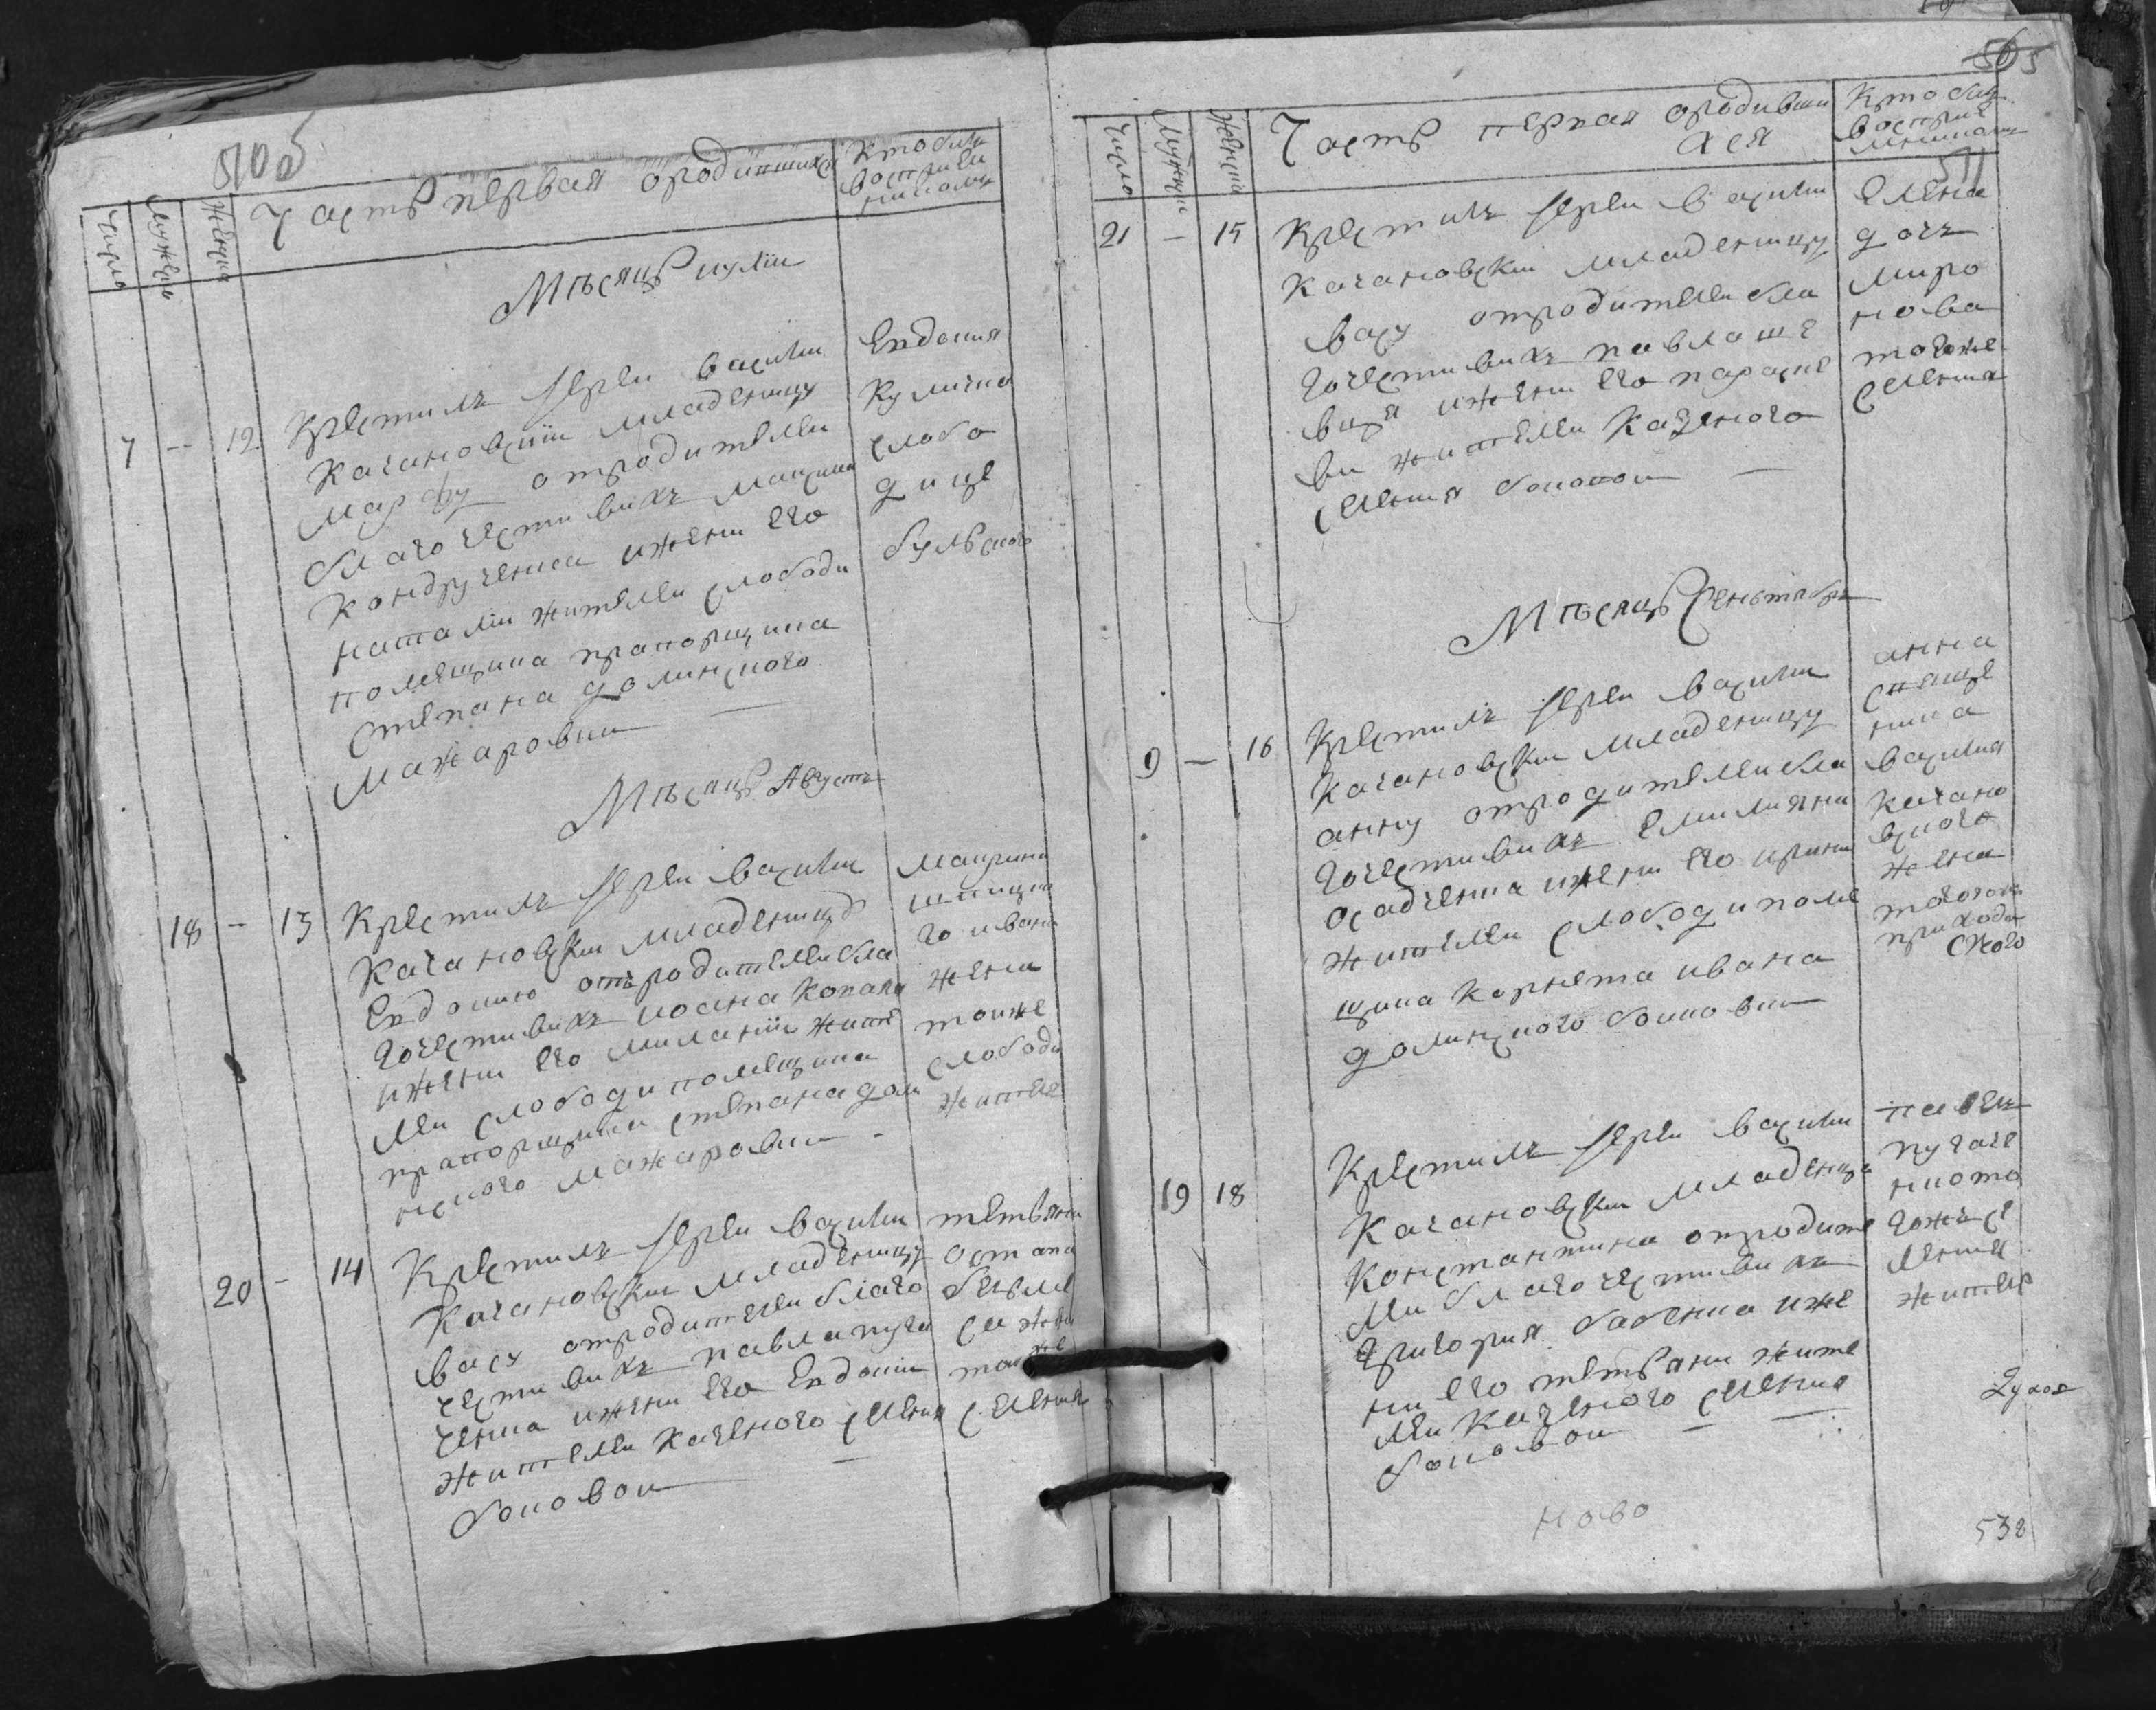 Часть первая ородившихся
Кто были
восприем
никами
Число
Мужеска
Женска
Мѣсяцъ иулии
7 — 12
Крестилъ иереи василии
Качановскии младеницу
марфу отродителей
благочестивихъ
Кондрученка ижени его
наталии жителей слободи
помещика прапорщика
степана долинского
мажаровки —
Евдокия
слобо
Мѣсяцъ Августъ
18 — 13
Крестилъ иереи василии
Качановскии младеницу
Евдокию отродителей бла
гочестивихъ иоана
ижени его мелании жите
лей слободи помещика
прапорщика степана доли
нского мажаровки —
го ивана
жена
тоиже
слободи
житель
20 - 14
Крестилъ иереи василии
Качановскии младеницу
васу отродителей благо
честивихъ павла пуга
ченка ижени его Евдокии
жителей казеного селения
боковои —
тетьяна
остапа
жена
тогоже
селения
505
Число
Мужеска
Женска
Часть первая ородивши
хся
Кто были
восприе
мниками
511
21 — 15
Крестилъ иереи василии
Качановскии младеницу
васу отродителей бла
гочестивихъ павла ше
ижени его параске
ви жителей казеного
селения боковои —
Елена
дочь
миро
нова
тогоже
селения
Мѣсяцъ Сеньтябръ
9 — 16
Крестилъ иереи василии
Качановскии младеницу
анну отродителей бла
гочестивихъ Емилияна
осадченка ижени его ирини
жителей слободи поме
щика корнета ивана
долинского боковки
анна
свяще
ника
василия
качано
вского
жена
тогожъ
приходи
ского
19 18
Крестилъ иереи василии
Качановскии младенца
Константина отродите
лей благочестивихъ
григория бабенка иже
ни его тетьяни жите
лей казеного селения
боковои —
павелъ
пугаче
нко то
гожъ се
ления
житель
2 духов
ново
538